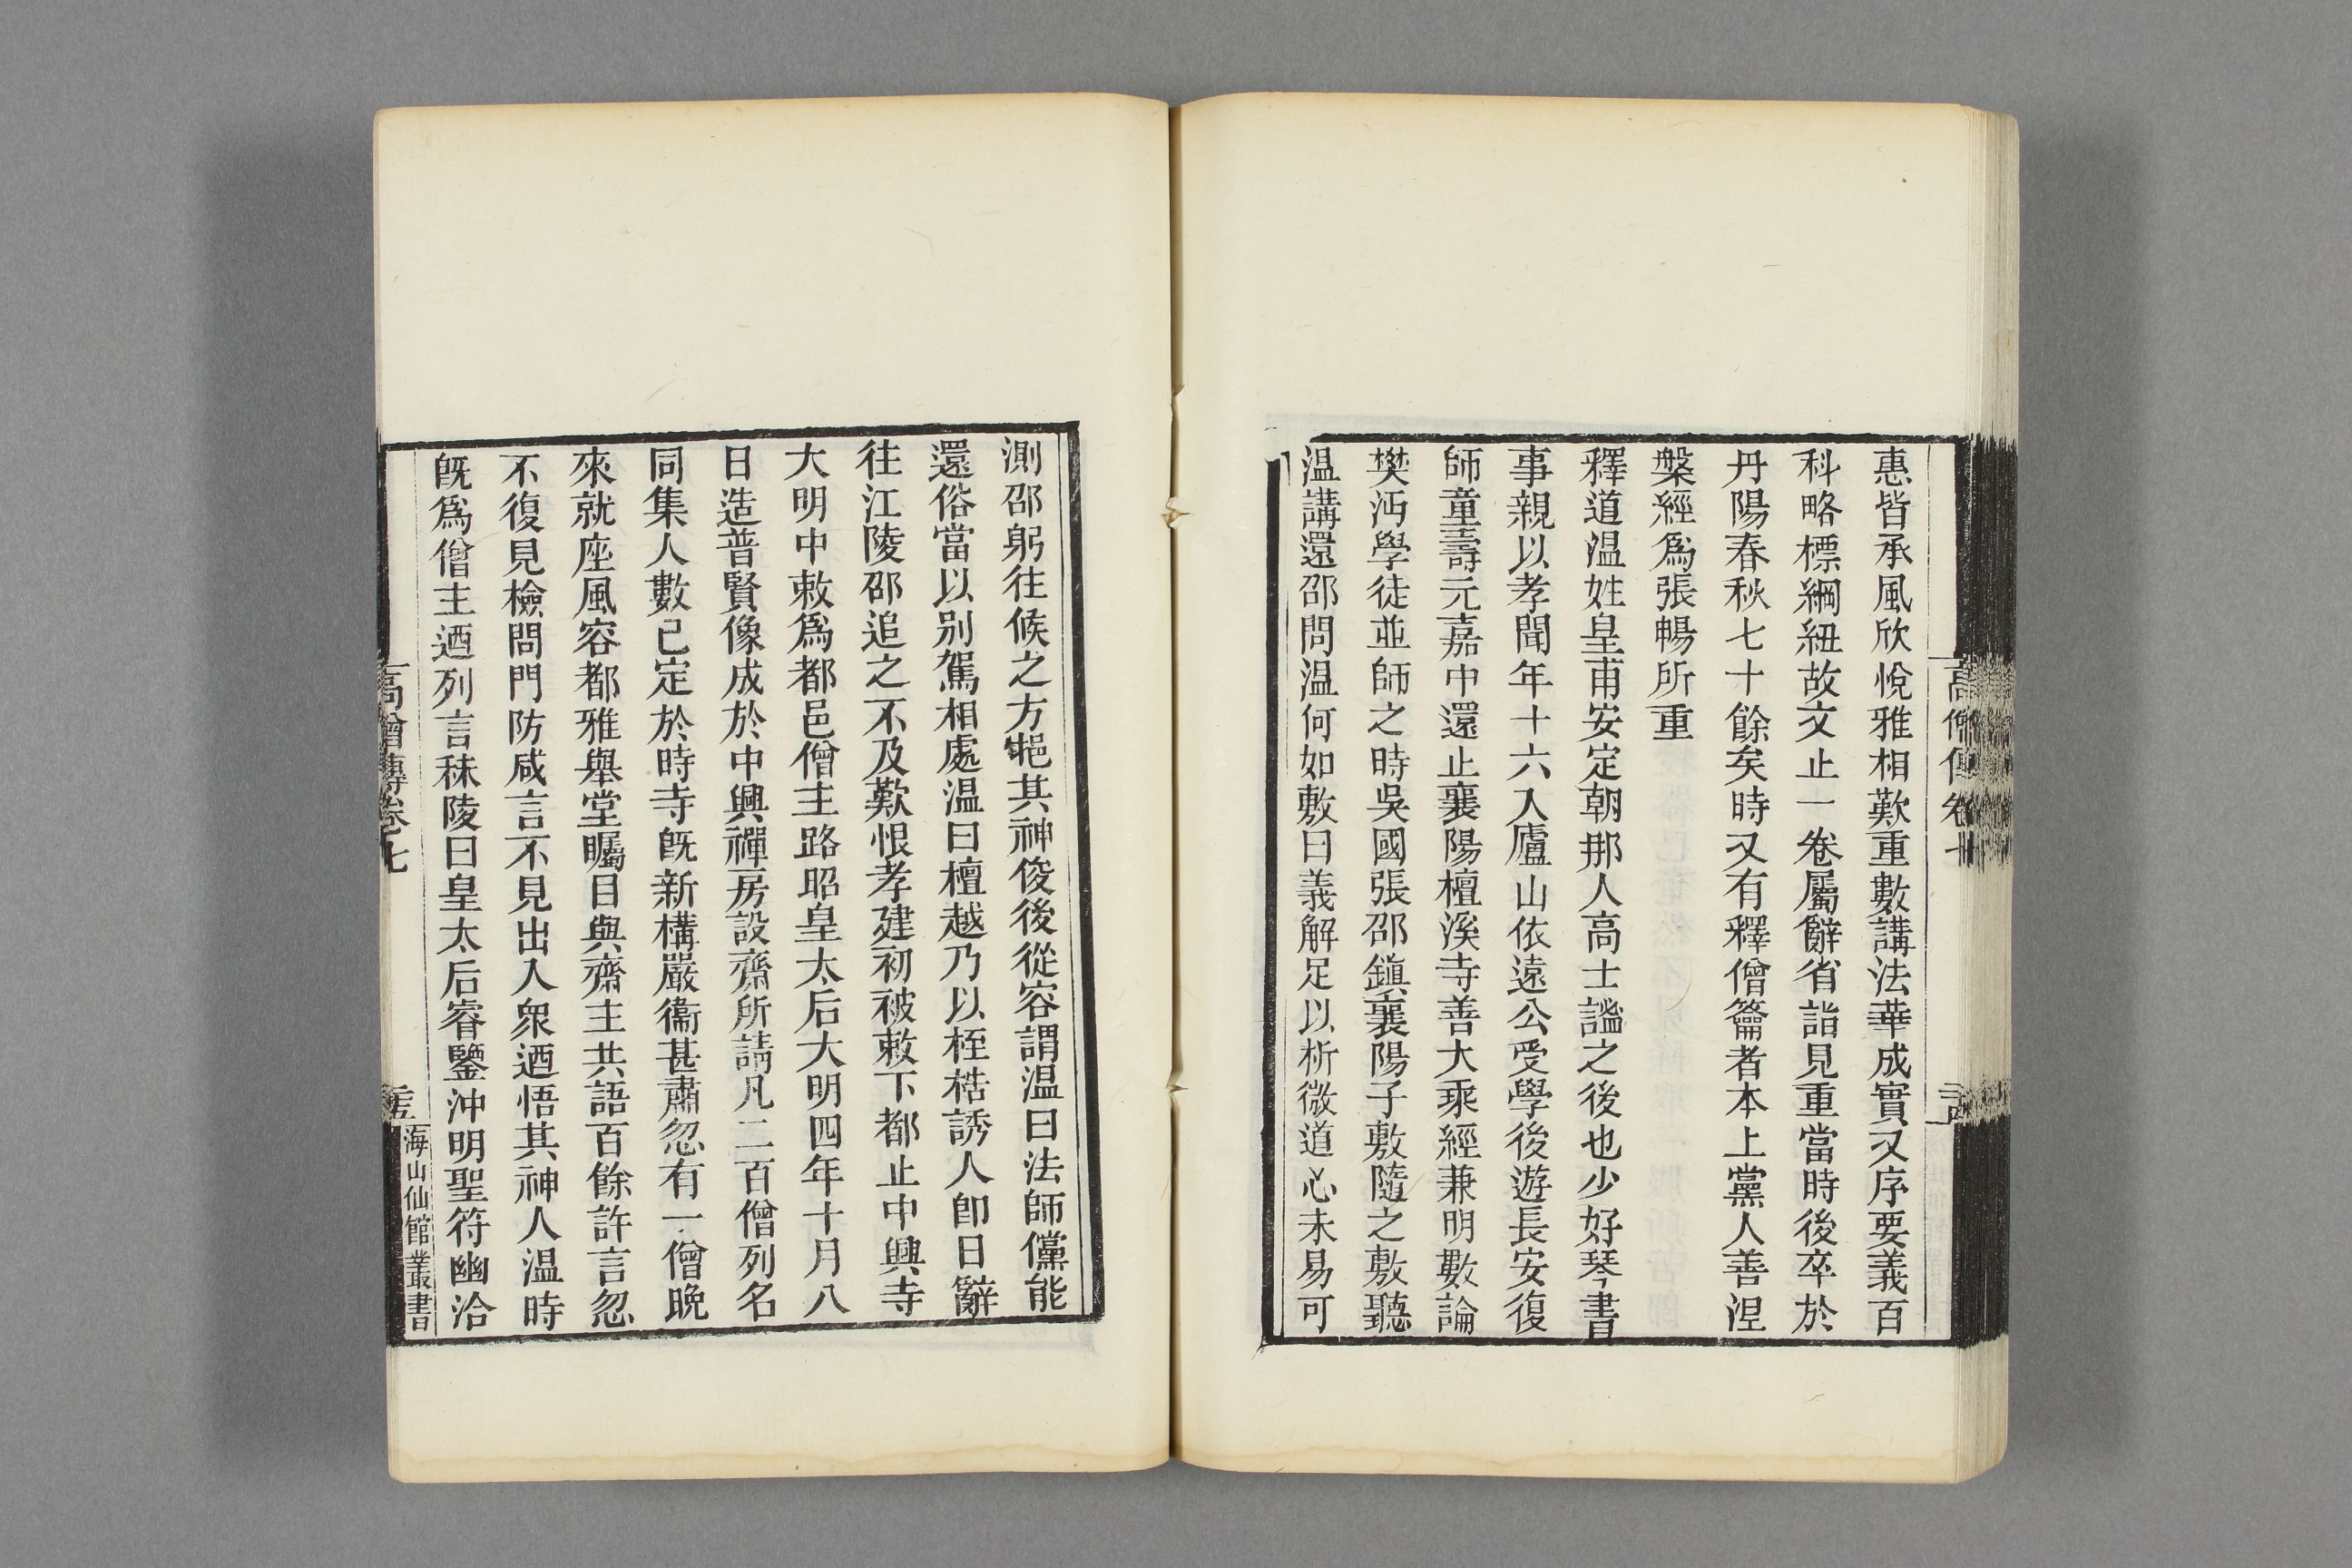 惠皆承風欣悅雅相歎重數講法華成實又序要義百
科略標綱紐故文止一卷屬辭省詣見重當時後卒於
丹陽春秋七十餘矣時又有釋僧籥者本上黨人善涅
槃經爲張暢所重
釋道温姓皇甫安定朝那人高士謐之後也少好琴書
事親以孝聞年十六入廬山依遠公受學後遊長安復
師童壽元嘉中還止襄陽檀溪寺善大乘經兼明數論
樊沔學徒並師之時吳國張邵鎮襄陽子敷隨之敷聽
温講還邵問温何如敷曰義解足以析微道心未易可
測邵躬往候之方挹其神俊後從容謂温曰法師儻能
還俗當以别駕相處温曰檀越乃以桎梏誘人卽日辭
往江陵邵追之不及歎恨孝建初被敕下都止中興寺
大明中敕爲都邑僧主路昭皇太后大明四年十月八
日造普賢像成於中興禪房設齋所請凡二百僧列名
同集人數已定於時寺既新構嚴衞甚肅忽有一僧晚
來就座風容都雅舉堂矚目與齋主共語百餘許言忽
不復見檢問門防咸言不見出入衆迺悟其神人温時
既爲僧主迺列言秣陵曰皇太后睿鑒沖明聖符幽洽
高僧傳卷七
海山仙館叢書